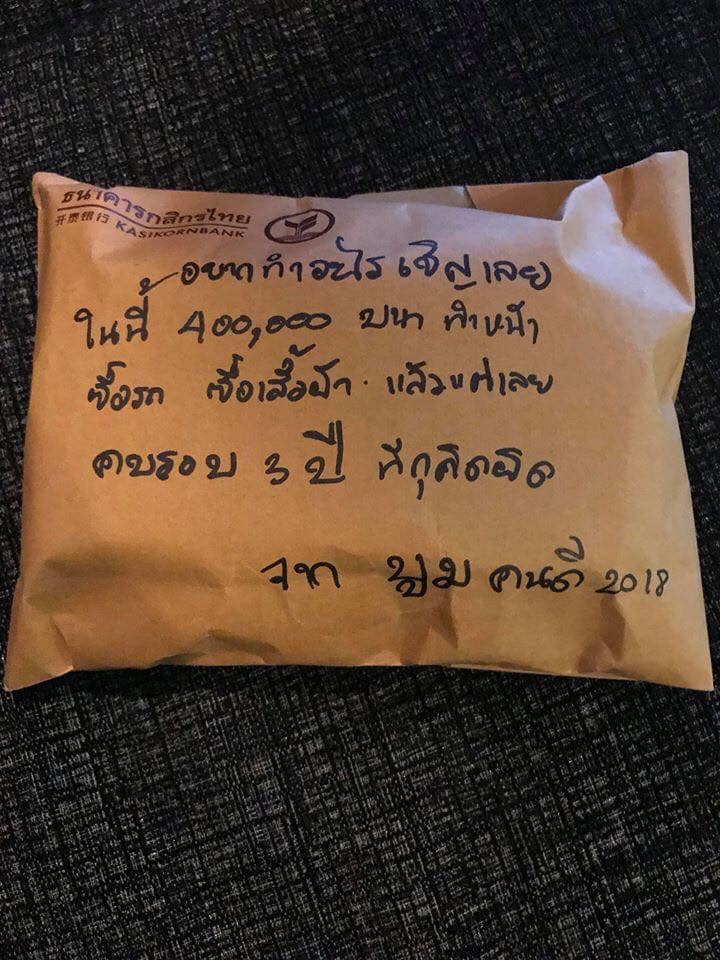 ธนาคารกสิกรไทย
开泰银行 KASIKORNBANK
อยากทำอะไร เชิญเลย
ในนี้ 400,000 บาท ทำหน้า
ซื้อรถ ซื้อเสื้อผ้า. แล้วแต่เลย
ครบรอบ 3 ปี ที่กูคิดผิด
จาก ภูมิ คนดี 2018